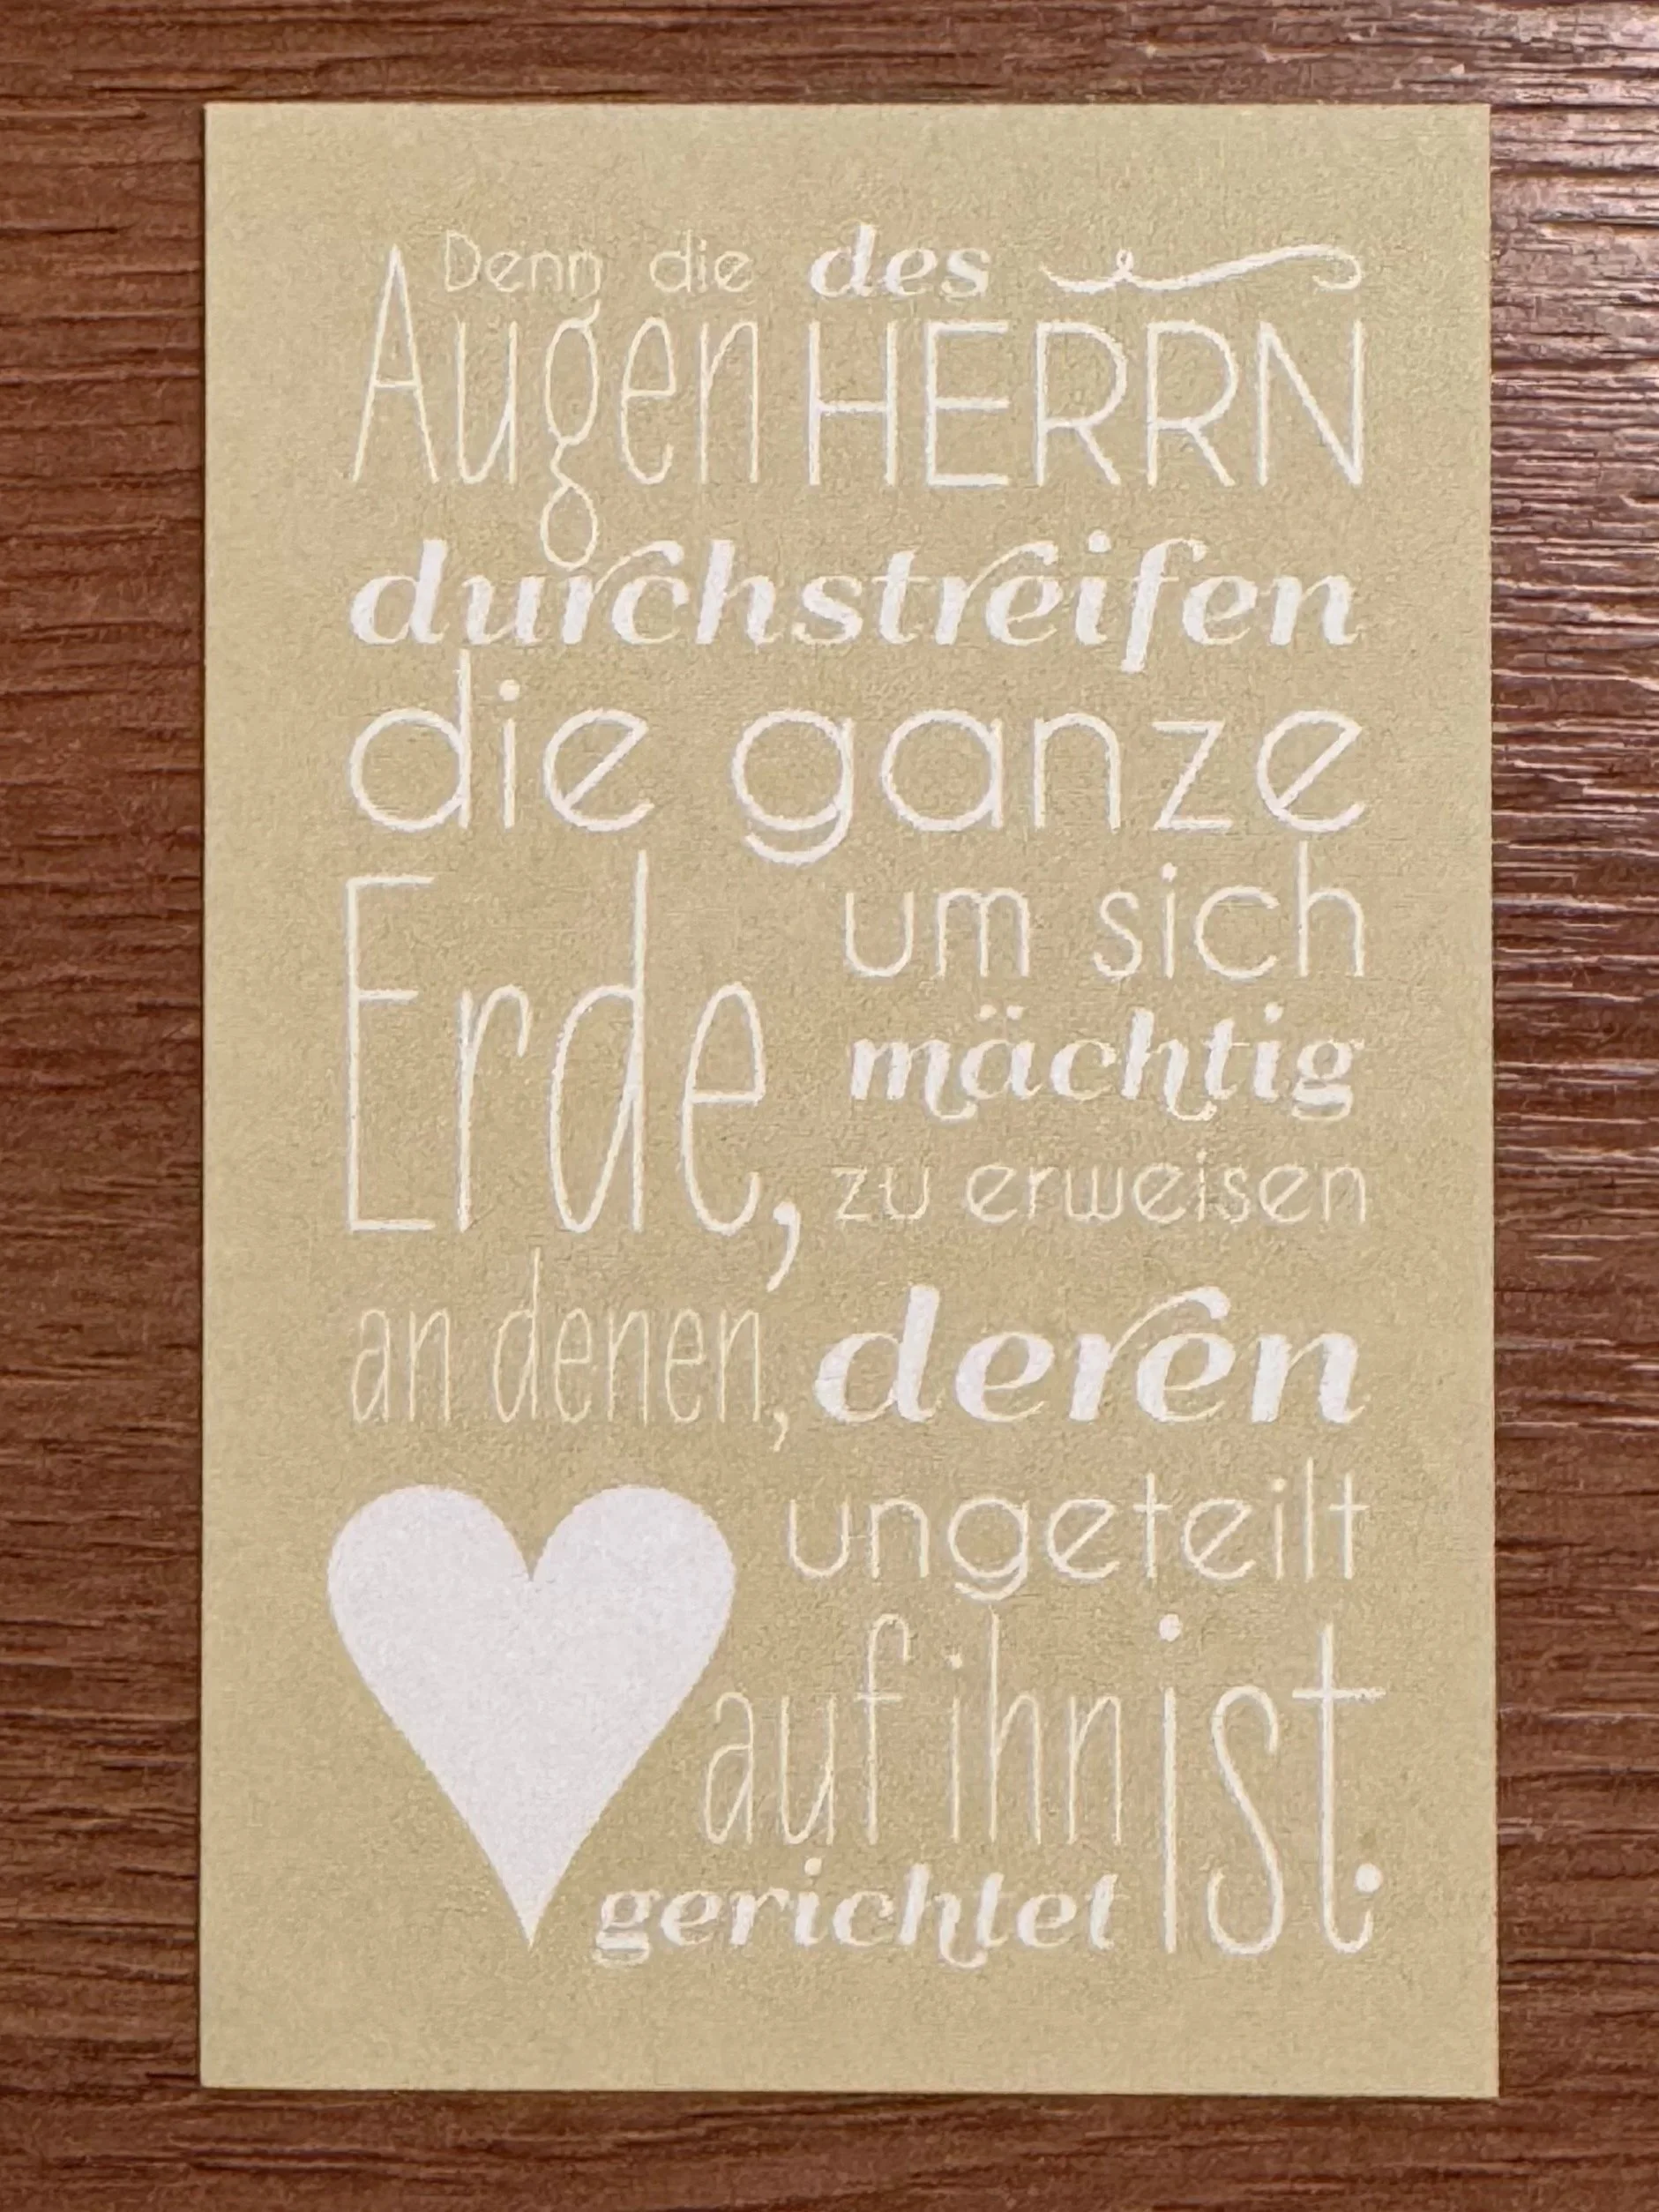 Denn die
Augen
des
HERRN
durchstreifen
die ganze
Erde,
um sich
mächtig
zu erweisen
an denen, deren
ungeteilt
auf ihn
gerichtet
ist.